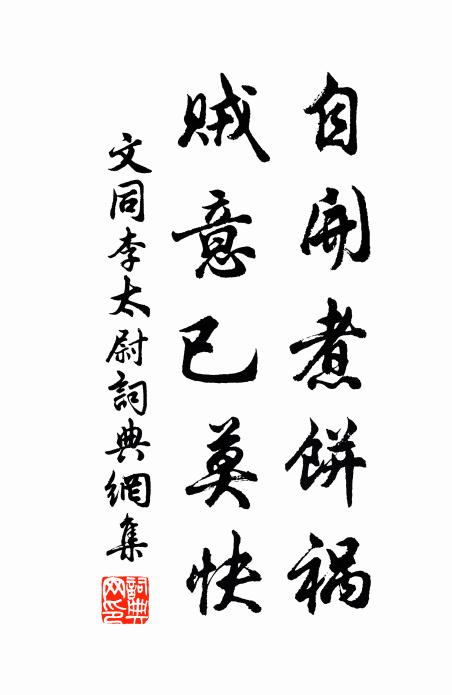 自開煮餅禍
賊意已莫快
文同李太尉詞典網集
詞典網印